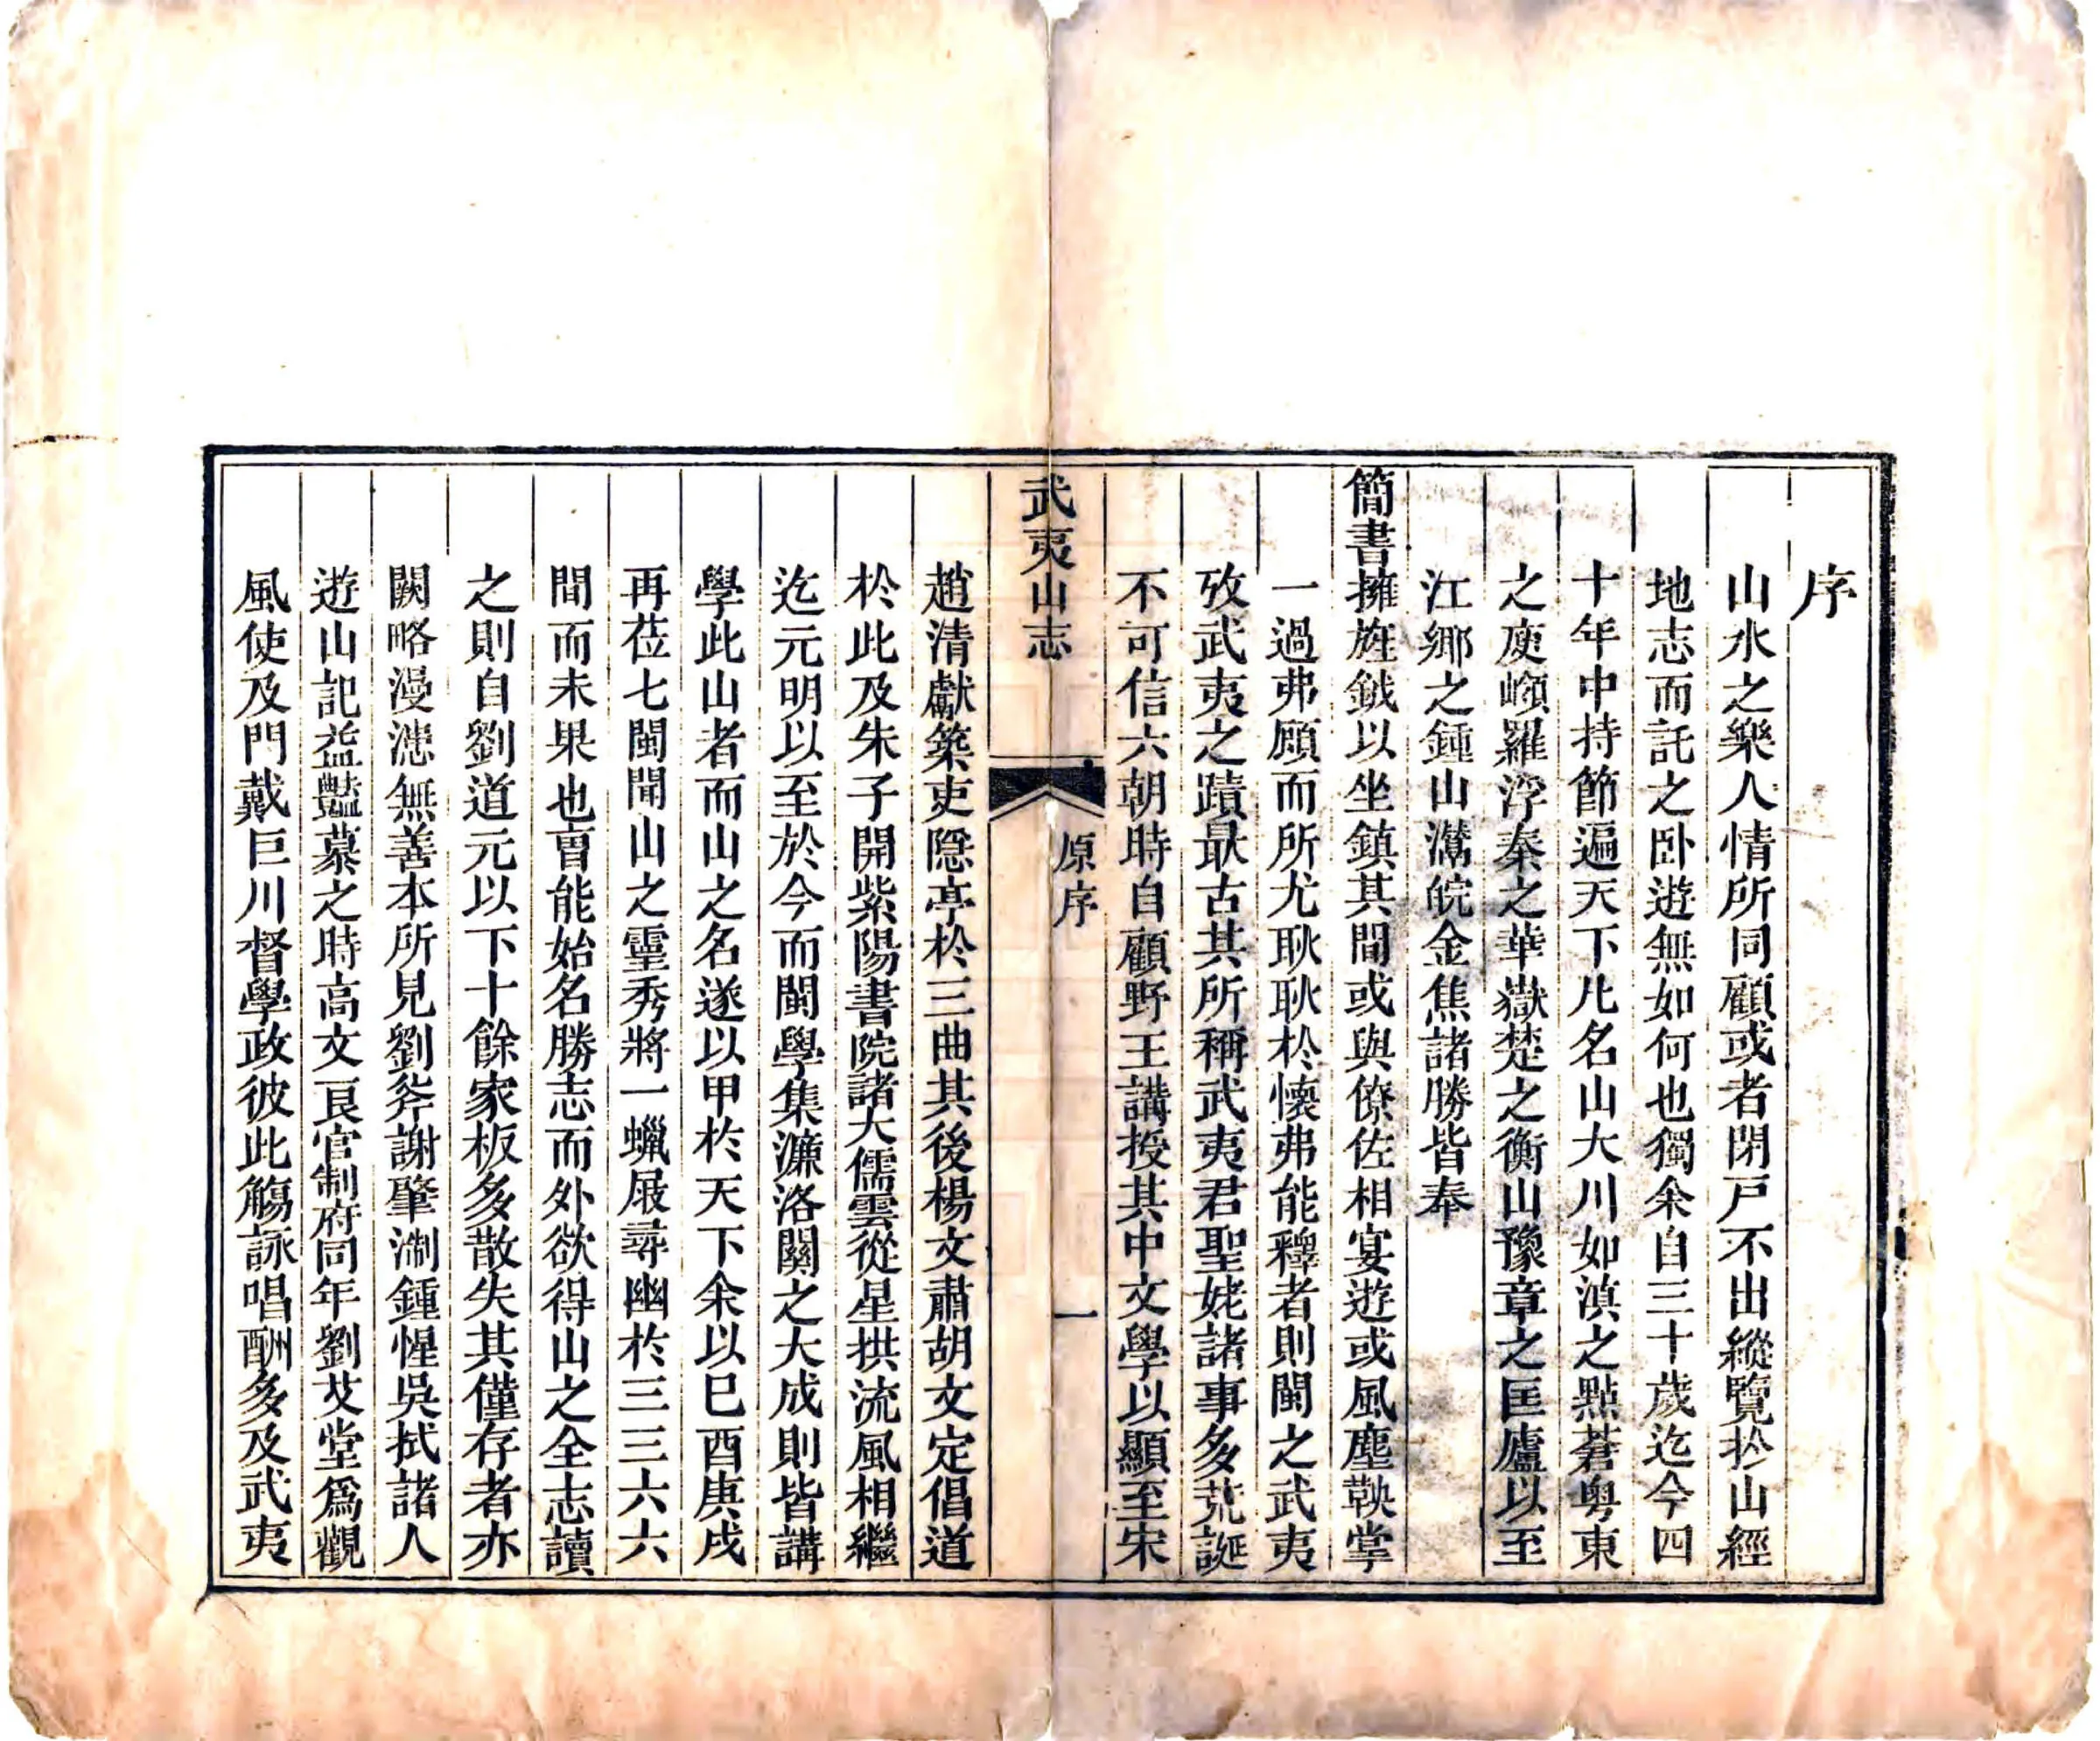 序
山水之樂人情所同顧或者閉戸不出縱覽於山經
地志而託之卧遊無如何也獨余自三十歲迄今四
十年中持節遍天下凡名山大川如滇之點蒼粤東
之庾嶺羅浮秦之華嶽楚之衡山豫章之匡廬以至
江鄉之鍾山灊皖金焦諸勝皆奉
簡書擁旌鉞以坐鎮其間或與僚佐相宴遊或風塵鞅掌
一過弗顧而所尤耿耿於懷弗能釋者則閩之武夷
攷武夷之蹟最古其所稱武夷君聖姥諸事多荒誕
不可信六朝時自顧野王講授其中文學以顯至宋
武夷山志
原序
一
趙清獻築吏隱亭於三曲其後楊文肅胡文定倡道
於此及朱子開紫陽書院諸大儒雲從星拱流風相繼
迄元明以至於今而閩學集濂洛關之大成則皆講
學此山者而山之名遂以甲於天下余以己酉庚戌
再莅七閩聞山之靈秀將一蠟屐尋幽於三三六六
間而未果也曺能始名勝志而外欲得山之全志讀
之則自劉道元以下十餘家板多散失其僅存者亦
闕略漫漶無善本所見劉斧謝肇淛鍾惺吳拭諸人
遊山記益豔慕之時高文良官制府同年劉艾堂爲觀
風使及門戴巨川督學政彼此觴詠唱酬多及武夷